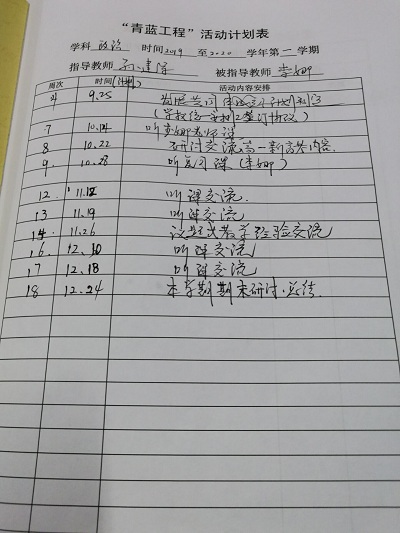 “青蓝工程”活动计划表
学科 政治 时间 2019 至 2020 学年第一学期
指导教师 被指导教师 李娜
周次 时间(计划) 活动内容安排
4 9.25 师徒共同
7 10.14 听李娜老师课
8 10.22 研讨交流高一新高考内容
9 10.28 听复习课(李娜)
12 11.12 听课交流
13 11.19 听课交流
14 11.26 议题式教学经验交流
16 12.10 听课交流
17 12.18 听课交流
18 12.24 本学期期末研讨.总结.